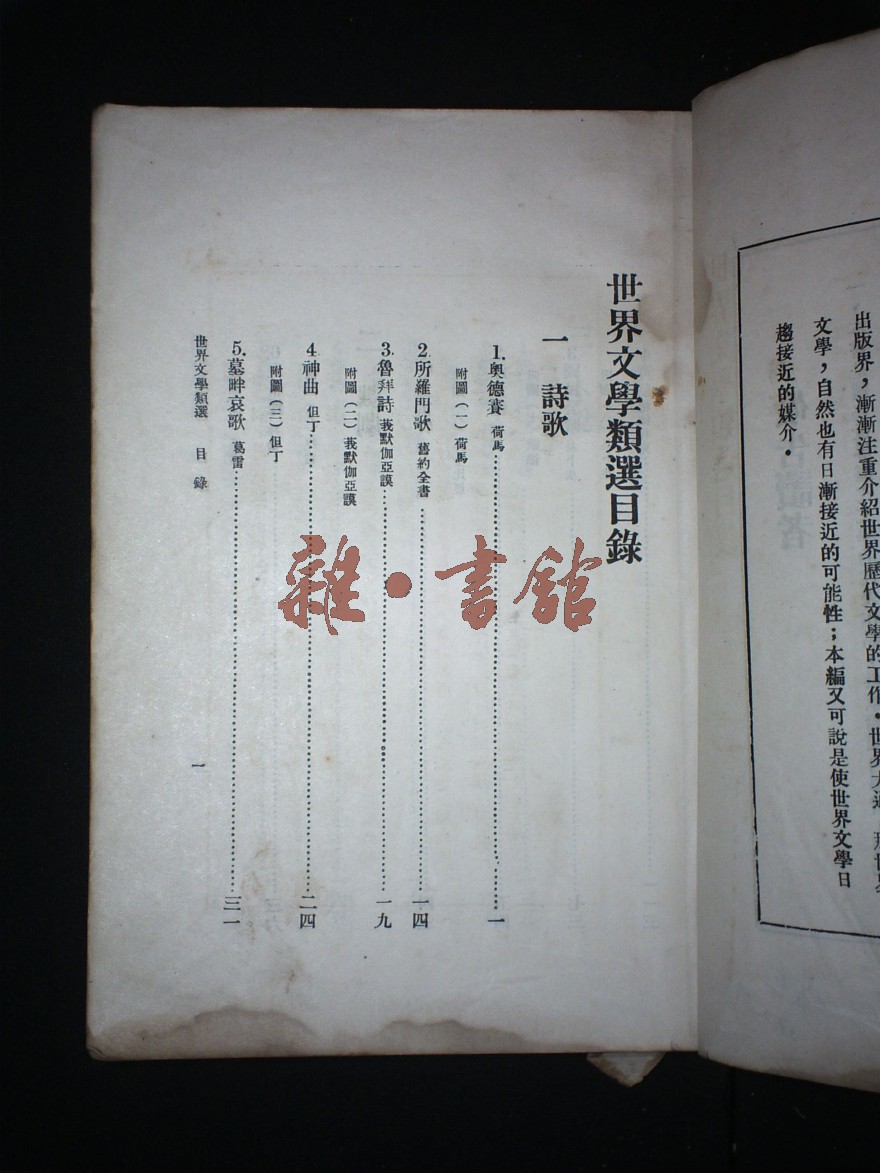 出版界，漸漸注重介紹世界歷代文學的工作．世界大通
文學，自然也有日漸接近的可能性；本編又可說是使世界文學日
趨接近的媒介．
世界文學類選目錄
一　詩歌
1. 奧德賽 荷馬……一
附圖（一）荷馬
2. 所羅門歌 舊約全書……一四
3. 魯拜詩 莪默伽亞謨……一九
附圖（二）莪默伽亞謨
4. 神曲 但丁……二四
附圖（三）但丁
5. 墓畔哀歌 葛雷……三一
世界文學類選　目錄　一
雜・書館